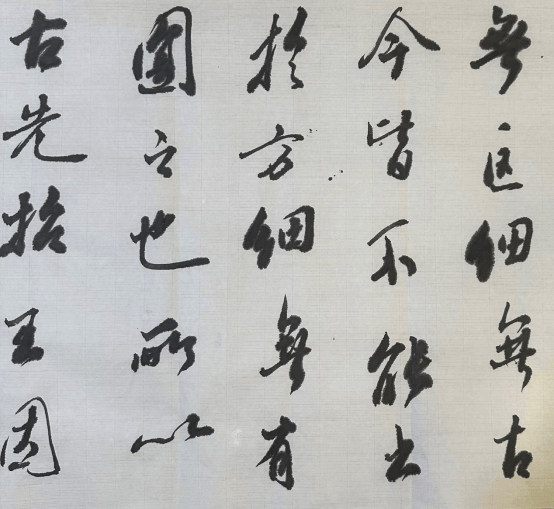 無巨細無古
今皆不能出
於方細無有
圓之也所以
古先王因